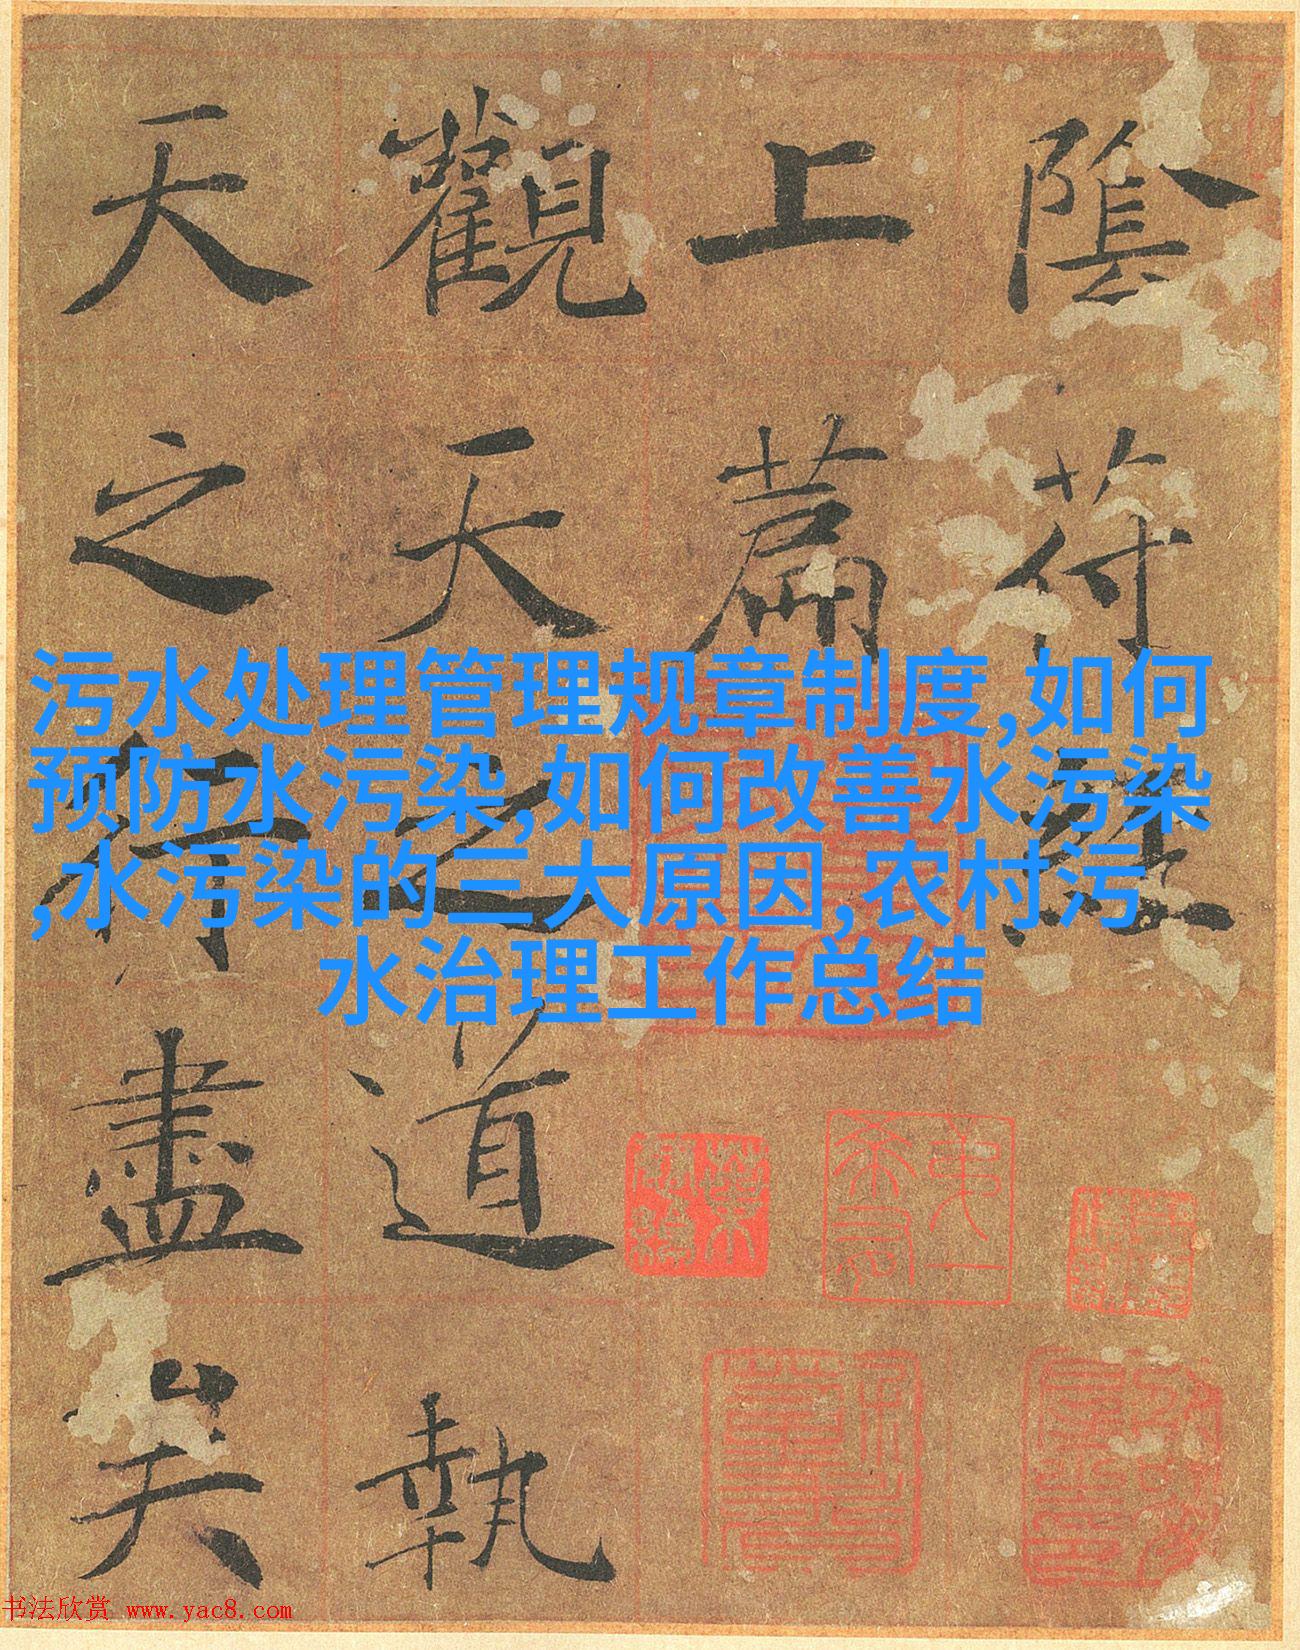 陰符經
上篇
觀天之道執
天之行盡矣
污水处理管理规章制度,如何
预防水污染,如何改善水污染
,水污染的三大原因,农村污
水治理工作总结
书法欣赏 www.yac8.com